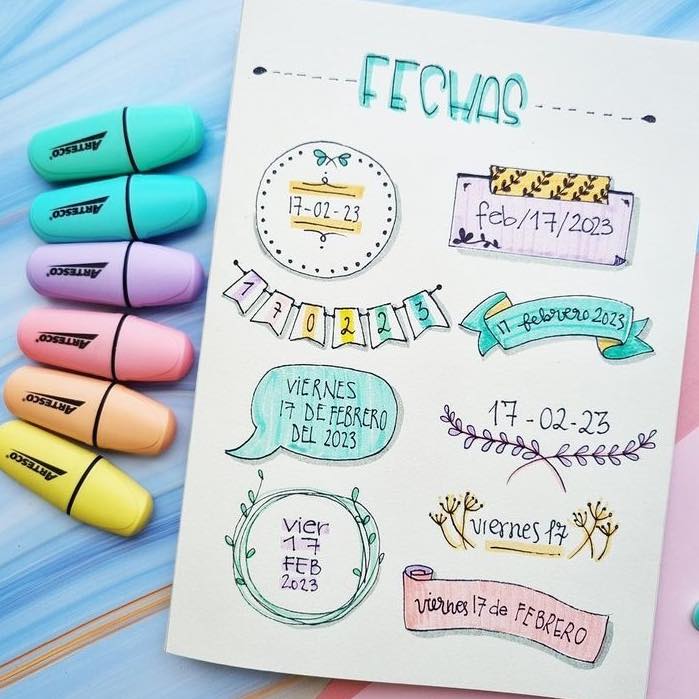 FECHAS
17-02-23
feb/17/2023
170223
17 febrero 2023
VIERNES
17 DE FEBRERO
DEL 2023
17-02-23
vier
17
FEB
2023
viernes 17
viernes 17 de FEBRERO
ARTESCO
ARTESCO
ARTESCO
ARTESCO
ARTESCO
ARTESCO